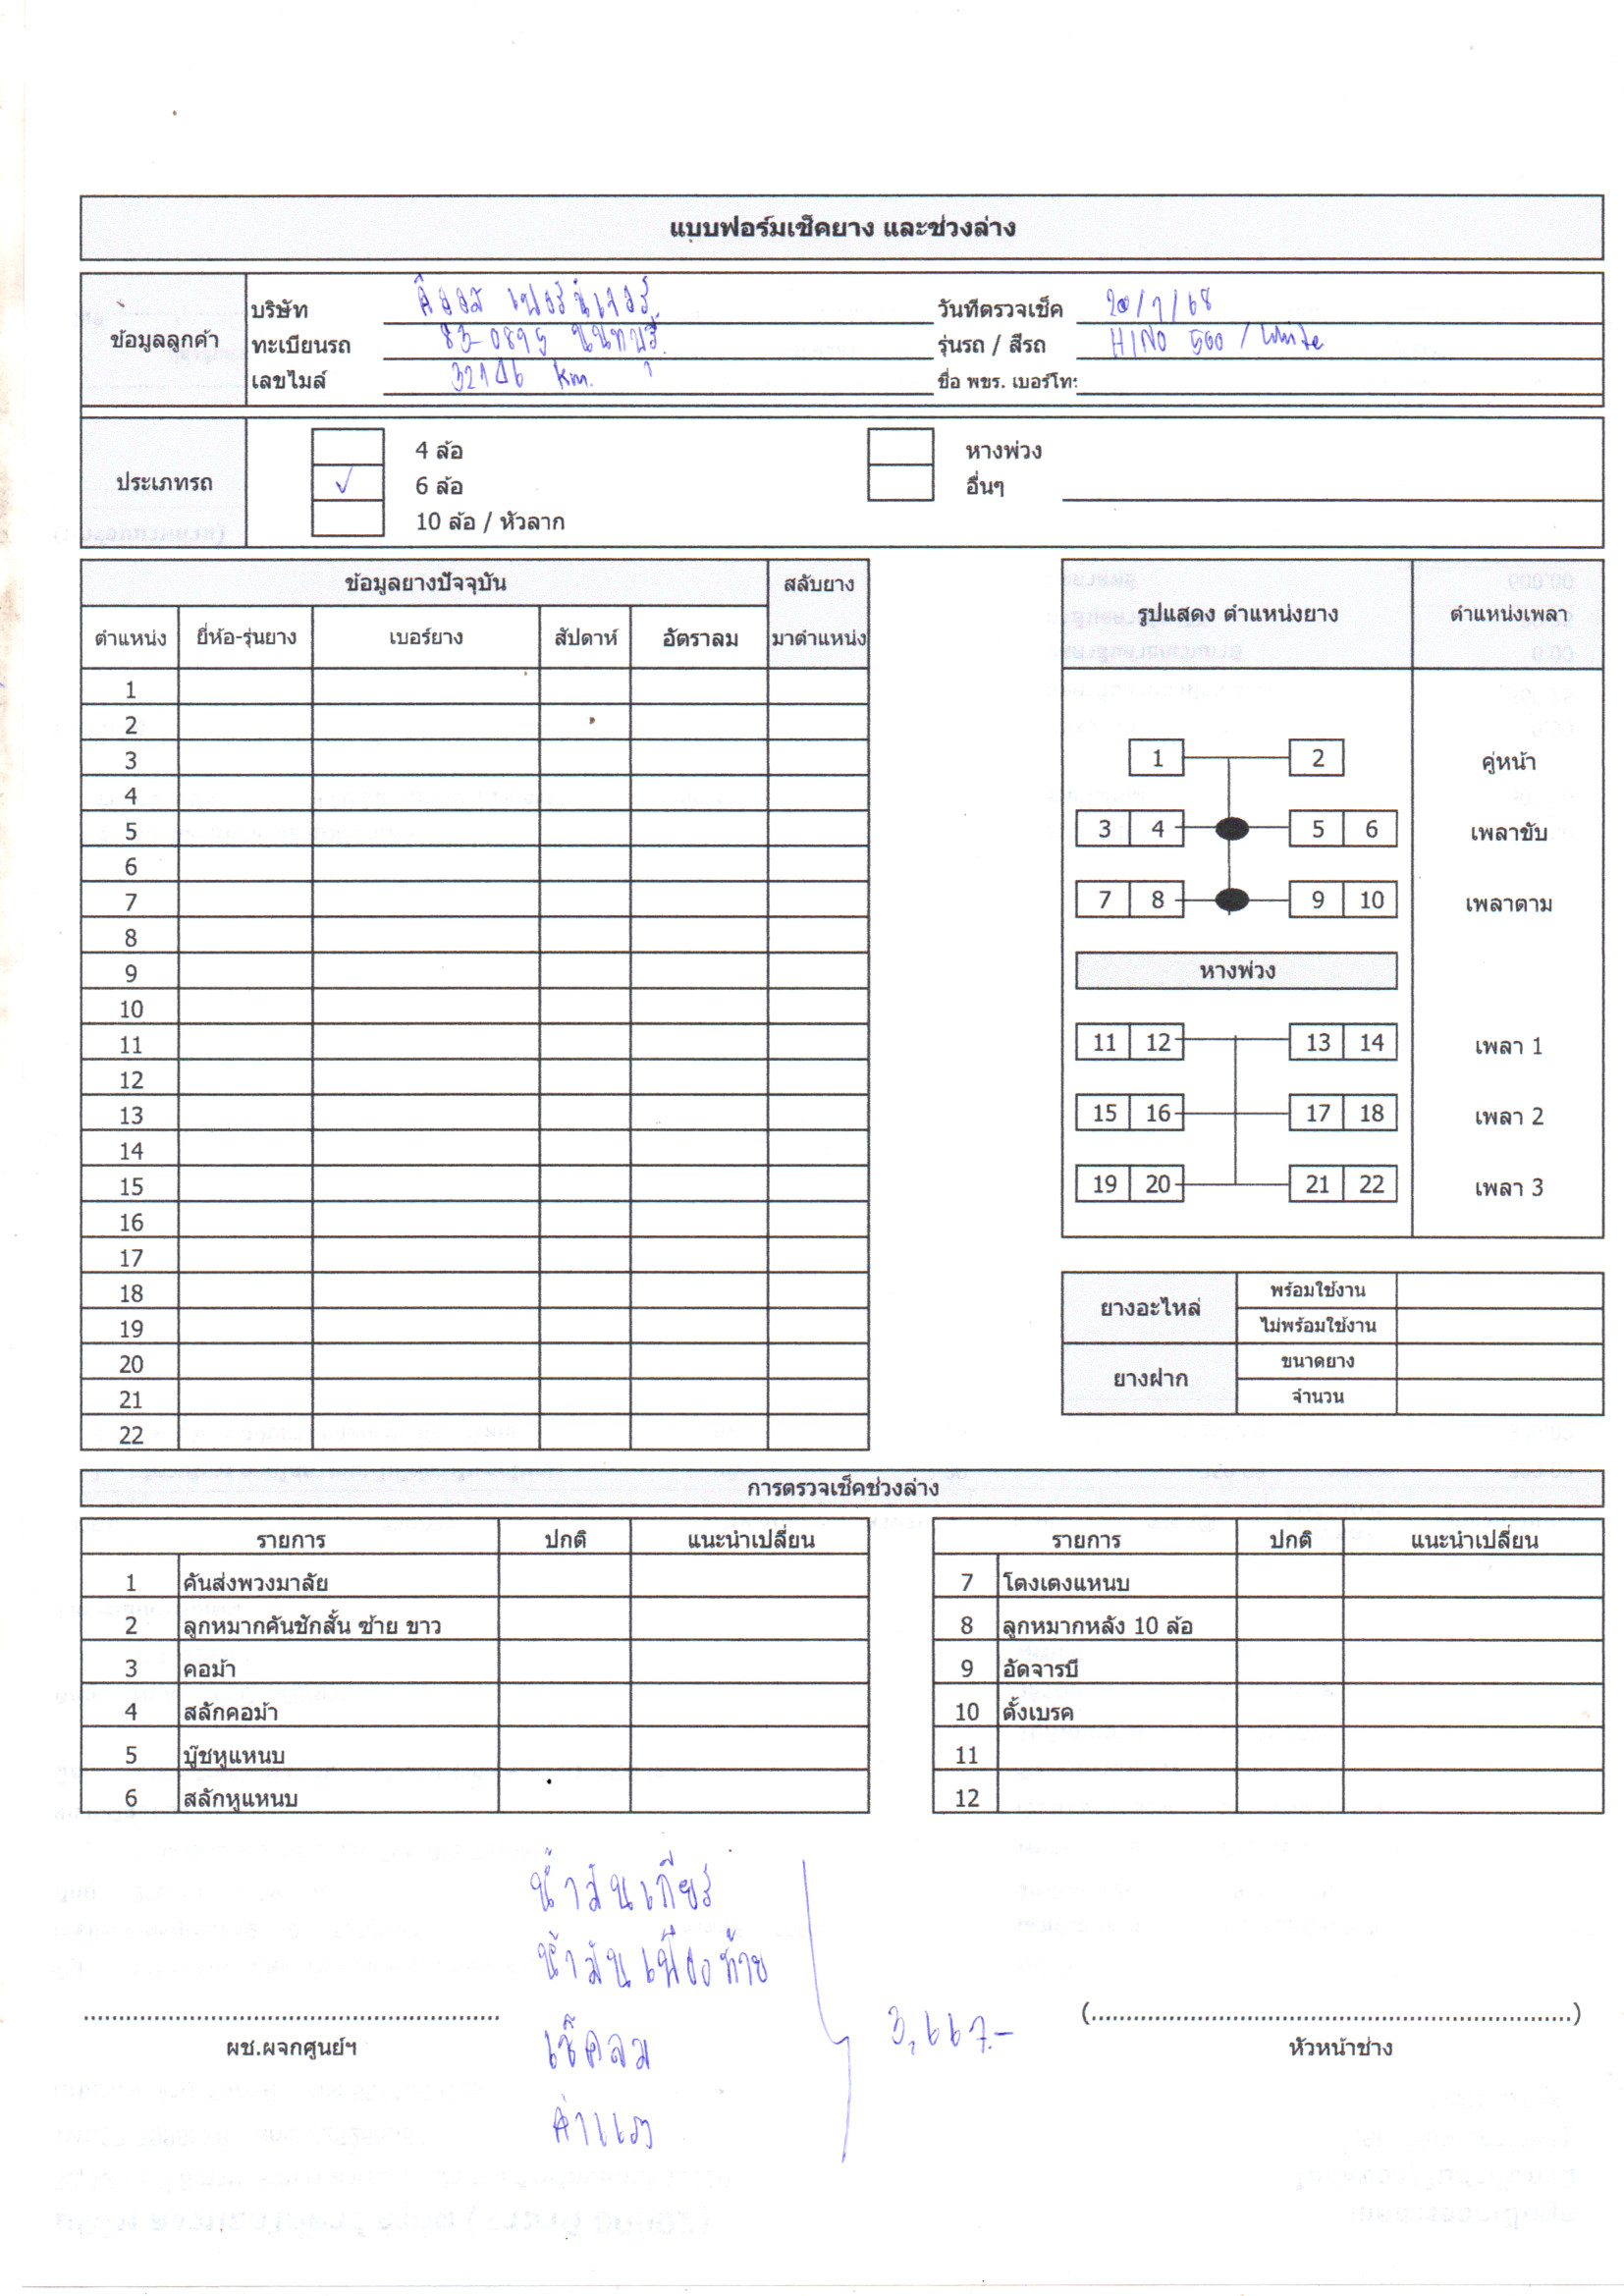 แบบฟอร์มเช็คยาง และช่วงล่าง
ข้อมูลลูกค้า
บริษัท เฟอร์นิเจอร์
ทะเบียนรถ 83-0895 นนทบุรี
เลขไมล์ Km.
วันที่ตรวจเช็ค /68
รุ่นรถ / สีรถ HINO 500 / White
ชื่อ พขร. เบอร์โทร
ประเภทรถ
4 ล้อ
✓ 6 ล้อ
10 ล้อ / หัวลาก
หางพ่วง
อื่นๆ
ข้อมูลยางปัจจุบัน สลับยาง
ตำแหน่ง ยี่ห้อ-รุ่นยาง เบอร์ยาง สัปดาห์ อัตราลม มาตำแหน่ง
1
2
3
4
5
6
7
8
9
10
11
12
13
14
15
16
17
18
19
20
21
22
รูปแสดง ตำแหน่งยาง ตำแหน่งเพลา
1 2 คู่หน้า
3 4 5 6 เพลาขับ
7 8 9 10 เพลาตาม
หางพ่วง
11 12 13 14 เพลา 1
15 16 17 18 เพลา 2
19 20 21 22 เพลา 3
ยางอะไหล่ พร้อมใช้งาน
ไม่พร้อมใช้งาน
ยางฝาก ขนาดยาง
จำนวน
การตรวจเช็คช่วงล่าง
รายการ ปกติ แนะนำเปลี่ยน
1 คันส่งพวงมาลัย
2 ลูกหมากคันชักสั้น ซ้าย ขาว
3 คอม้า
4 สลักคอม้า
5 บู๊ชหูแหนบ
6 สลักหูแหนบ
รายการ ปกติ แนะนำเปลี่ยน
7 โตงเตงแหนบ
8 ลูกหมากหลัง 10 ล้อ
9 อัดจารบี
10 ตั้งเบรค
11
12
น้ำมันเกียร์
น้ำมันเฟืองท้าย
เช็คลม
ค่าแรง
3,667.-
ผช.ผจกศูนย์ฯ
(..........)
หัวหน้าช่าง